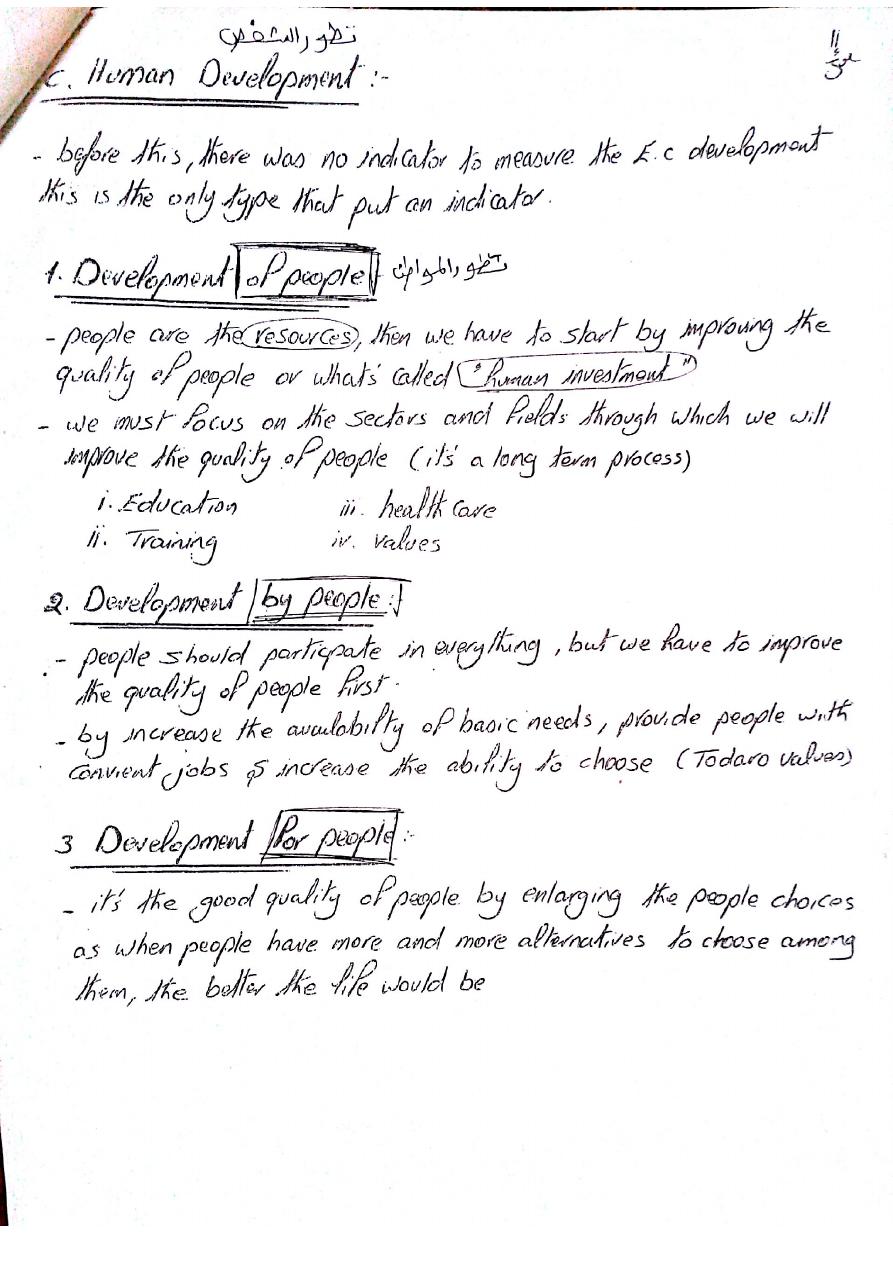 تطور الشخص
11
C. Human Development :-
- before this, there was no indicator to measure the E.c development
this is the only type that put an indicator.
1. Development of people تطور المواطن
- people are the resources, then we have to start by improving the
quality of people or what's called "human investment"
- we must focus on the sectors and fields through which we will
improve the quality of people (it's a long term process)
i. Education iii. health care
ii. Training iv. values
2. Development by people :-
- people should particpate in everything, but we have to improve
the quality of people first.
- by increase the availabilty of basic needs, provide people with
convient jobs & increase the ability to choose (Todaro values)
3 Development for people :-
- it's the good quality of people by enlarging the people choices
as when people have more and more alternatives to choose among
them, the better the life would be